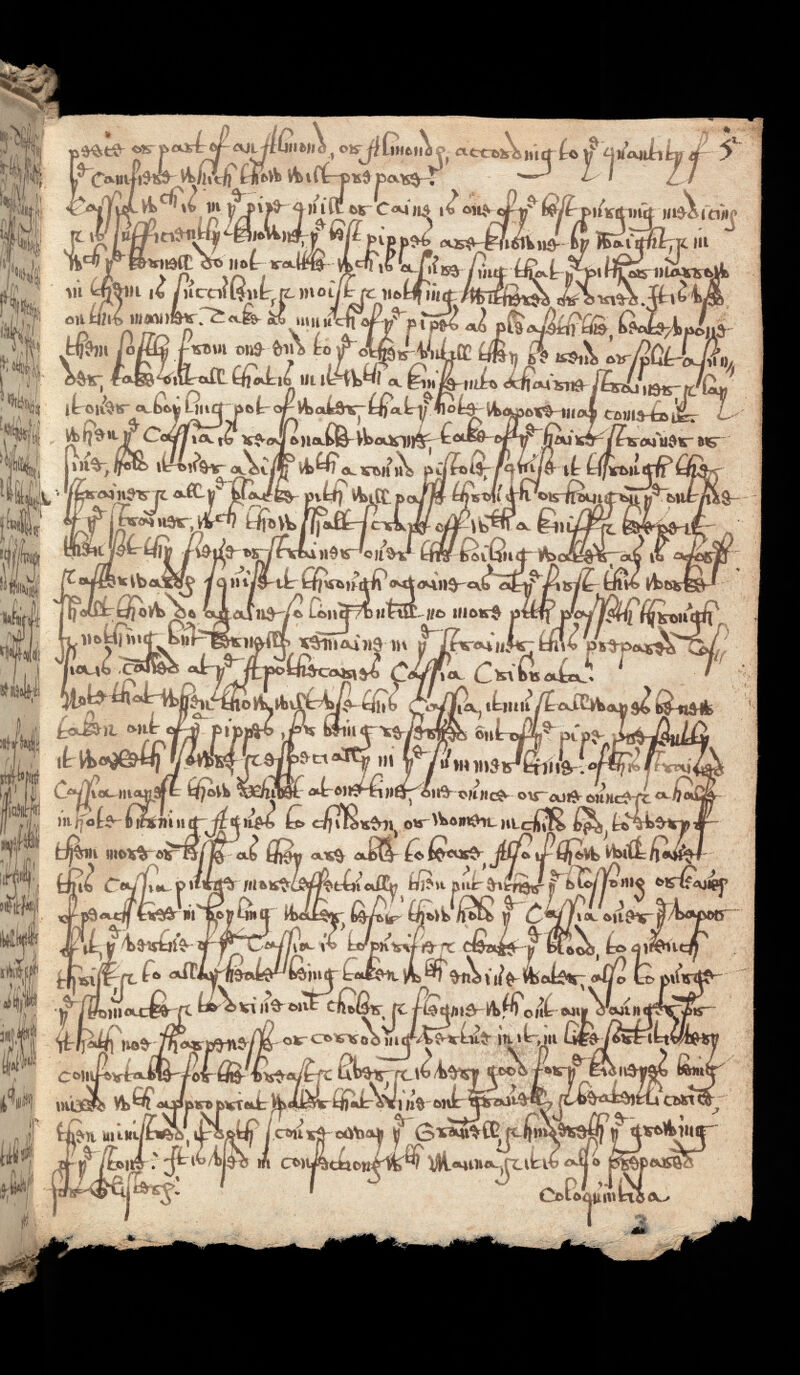 peece or part of an Almond, or Almondes, accordinge to ye quantity of 5
ye Camfire which thow wilt prepare:
Cassia wch is in ye pipe quill or Caine is one of ye best purgeing medicins
it is sufficiently knowne, ye best pippes are knowne by waight, & in
wch ye kernell do not rattle wch is a sure sing that ye pith or marrow
in them is succulent, & moist & nothing withered or dried. It is vsed
on this manner. Take as much of ye pipes as pleaseth the, beate vpone
them softly from one end to ye other vntill they be rend or split a sun,
der, take out all that is in it wth a knife into a haire strainer & lay
it over a boyling pot of water, that ye hote vapore may come to it.
when ye Cassia is reasonable warme, take of ye haire strainer or
sive, hold it over a dish wth a round pistole, squise it through the
strainer & all ye blacke pith will passe through or hange on ye out side
of ye strainer, wch thow shall scrape off wth a kniffe & keepe it
then set thy sieve or strainer over the boiling water, as is afore
 squise it through againe as at ye first, this worke
shalt thow do againe so longe vntill no more pith passeth through,
& nothing but kernells remaine in ye strainer, this prepared Cas,
sia is called at ye Apothecaries Cassia Cribrata:
Note that when thow wilt vse this Cassia, it must allwayes be new
taken out of ye pippes, for being reserved out of ye pipe presently
it waxeth sowre & especially in ye summer time. of this strained
Cassia mayest thow at one time, one ounce or ane ounce & a halfe
in hote burning agues to children, or women in child bed, to every of
them more or lesse as they are able to beare, Also if thow wilt have
this Cassia purge more effectually, then put vnder ye blossoms or leaves
of peach tree in boyling water, before thow hold ye Cassia over ye vapor
of it, ye vertue of ye Cassia is to purifie & clense ye blood, to quench
thirst & to allay heate being taken wth endivie water, also to purge
ye stomacke & to drive out choler, & flegme wthout any daunger for
it hath noe sharpenesse or corroding vertue in it, in like sort it is very
comfortable for the breast & liver, & is very good for ye kidneyes being
mixed wth appropriat water that drive out gravell, & 
then ministred, it doth scoure away ye Gravell & hindereth ye growing
of ye stone: It is vsed in confections wth Manna, & it is also prepared
for Glisters:
Coloquintida
3